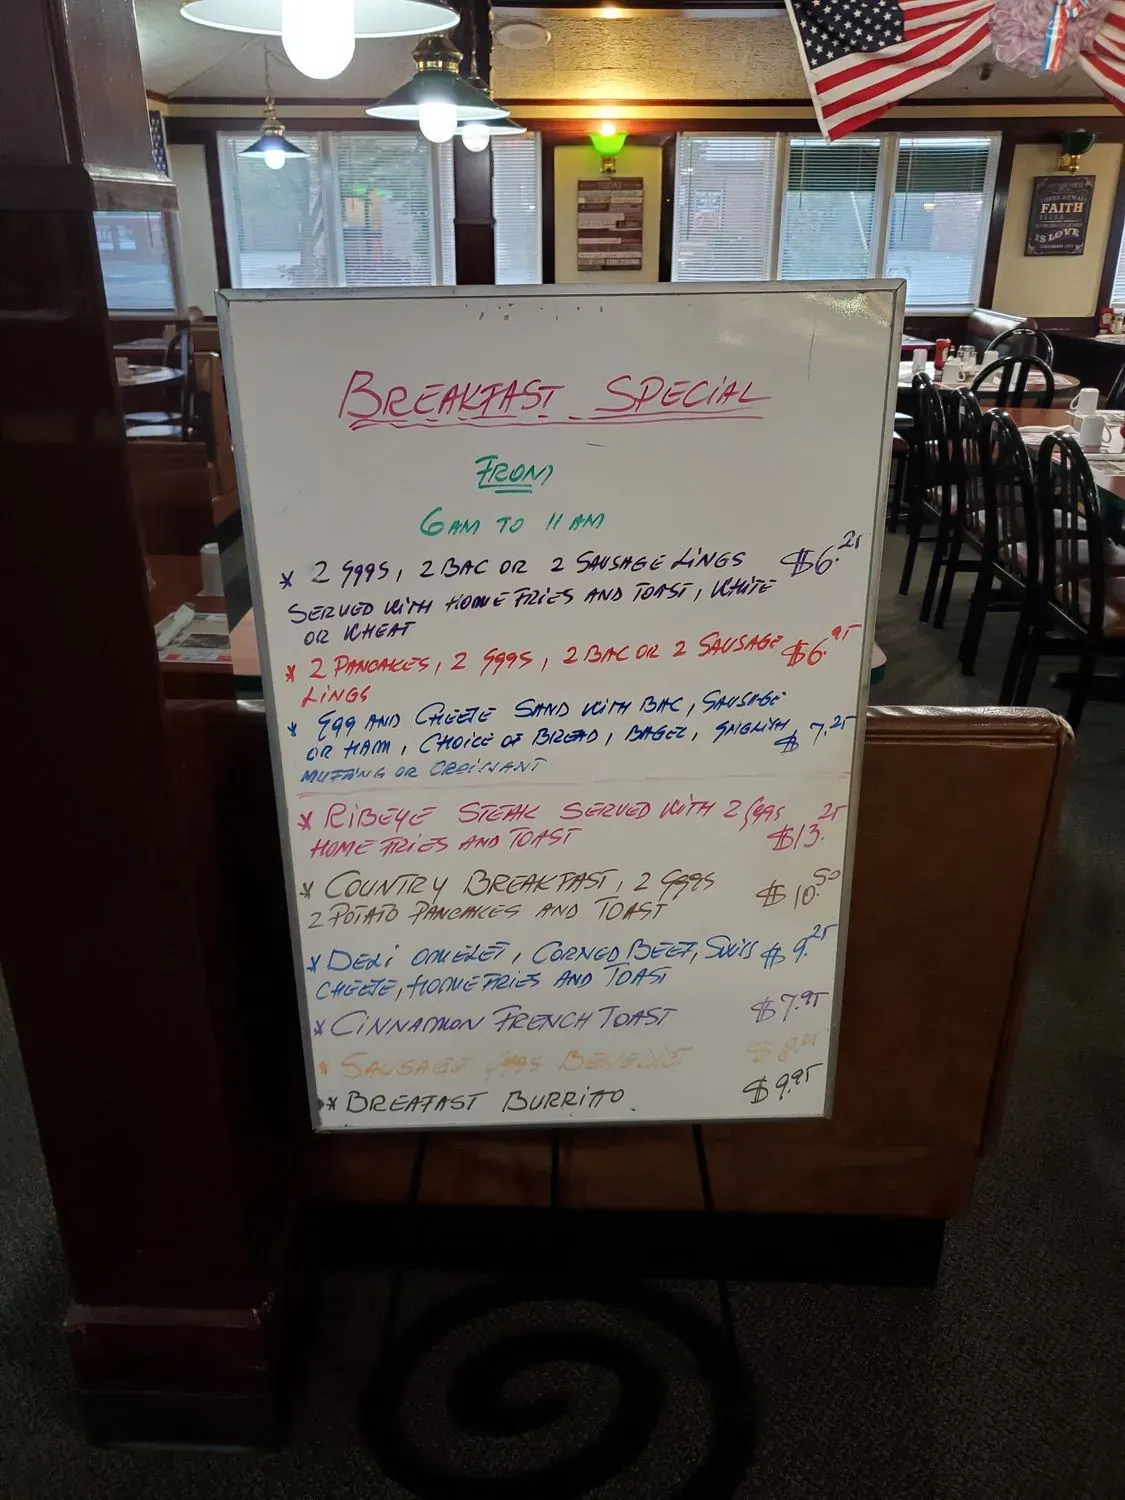 FAITH
IS LOVE
BREAKFAST SPECiAL
FROM
6 AM TO 11 AM
* 2 EGGS, 2 BAC OR 2 SAUSAGE LiNGS $6.25
SERVED WITH HOME FRIES AND TOAST, WHITE
OR WHEAT
* 2 PANCAKES, 2 EGGS, 2 BAC OR 2 SAUSAGE $6.95
LiNGS
* EGG AND CHEESE SAND WITH BAC, SAUSAGE
OR HAM, CHOICE OF BREAD, BAGEL, ENGLISH $7.25
MUFFING OR CROISSANT
* RiBEYE STEAK SERVED WITH 2 EGGS
HOME FRIES AND TOAST $13.25
* COUNTRY BREAKFAST, 2 EGGS
2 POTATO PANCAKES AND TOAST $10.50
* DELi OMELET, CORNED BEEF, SWIS $9.25
CHEESE, HOME FRIES AND TOAST
* CiNNAMON FRENCH TOAST $7.95
* SAUSAGE EGGS BENEDICT
* BREAFAST BURRITTO $9.95